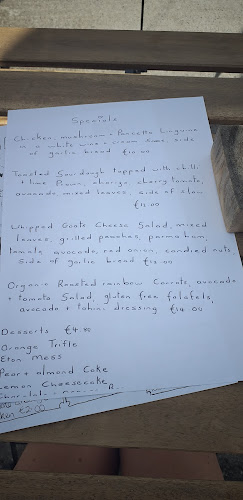 Specials
Chicken, mushroom + Pancetta linguine
in a white wine + cream sauce, side
of garlic bread
Toasted Sourdough topped with chilli
+ lime Prawn, chorizo, cherry tomato,
avocado, mixed leaves, side of slaw
Whipped Goats Cheese Salad, mixed
leaves, grilled peaches, parma ham,
tomato, avocado, red onion, candied nuts.
Side of garlic bread
Organic Roasted rainbow Carrots, avocado
+ tomato Salad, gluten free falafels,
avocado + tahini dressing €14.00
Desserts
Orange Trifle
Eton Mess
Pear + almond Cake
Lemon Cheesecake
€2.00